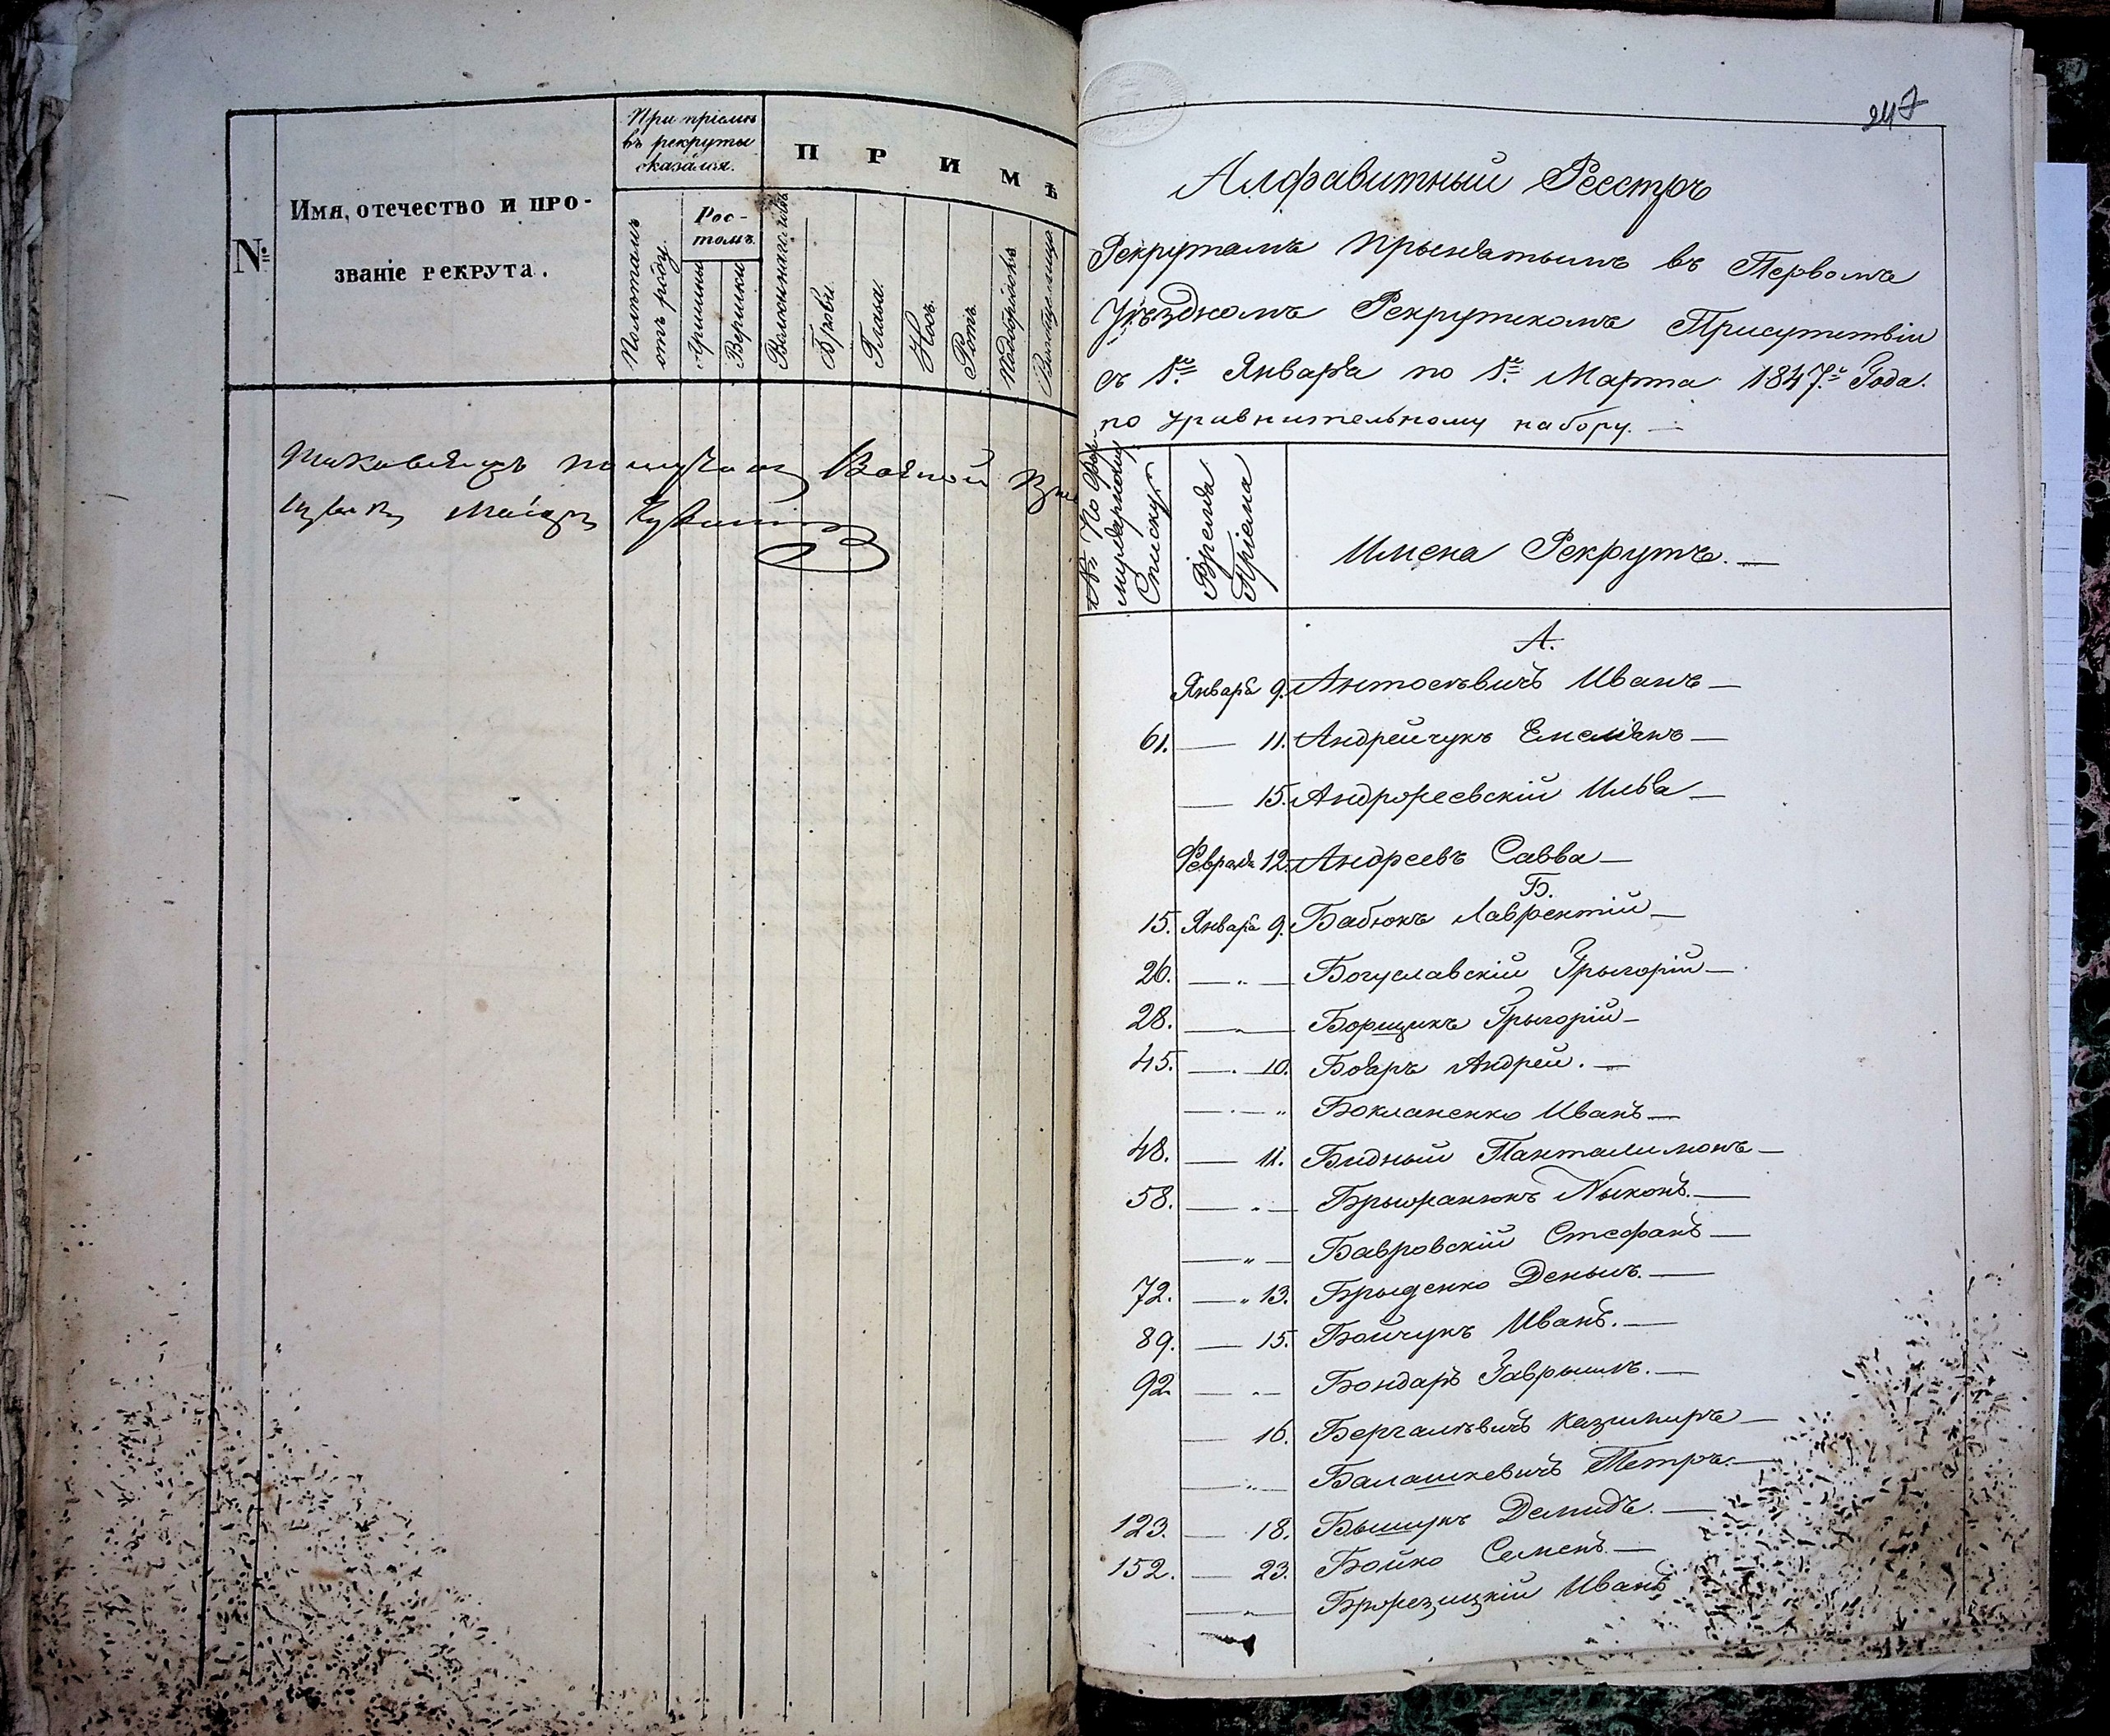 №
Имя, отечество и про-
званіе рекрута.
При пріемѣ
въ рекруты
оказался.
Полѣтамъ
отъ роду.
Рос-
томъ.
Аршины
Вершки
ПРИМѢ
Волосы на головѣ
Брови.
Глаза.
Носъ.
Ротъ.
Подбородокъ
247
Алфавитный Реестръ
Рекрутамъ Прынятымъ въ Первомъ
Уѣздномъ Рекрутскомъ Присутствіи
съ 1го Января по 1е Марта 1847го Года.
по уравнительному набору. —
№ По фор-
мулярному
Списку
Время
Пріема
Имена Рекрутъ. —
А.
Января 9. Антосѣвичъ Иванъ —
61. — 11. Андрейчукъ Емелянъ —
— 15. Андрореевскій Илья —
Февраля 12. Андреевъ Савва —
Б.
15. Января 9. Бабюкъ Лаврентій —
26. — „ — Богуславскій Грыгорій —
28. — „ — Борщикъ Грыгорій —
45. — . — 10. Бояръ Андрей. —
— . — „ Бокланенко Иванъ —
48. — 11. Бидный Панталимонъ —
58. — „ — Ныконъ. —
— „ — Бавровскій Стефанъ —
72. — „ 13. Деныъ. —
89. — 15. Бойчукъ Иванъ. —
92. — „ — Бондаръ Гаврыилъ. —
— 16. Бергалѣвичъ Казимиръ —
— „ — Балашкевичъ Петръ. —
123. — 18. Бышукъ Демидъ. —
152. — 23. Бойко Семенъ —
— „ — Иванъ